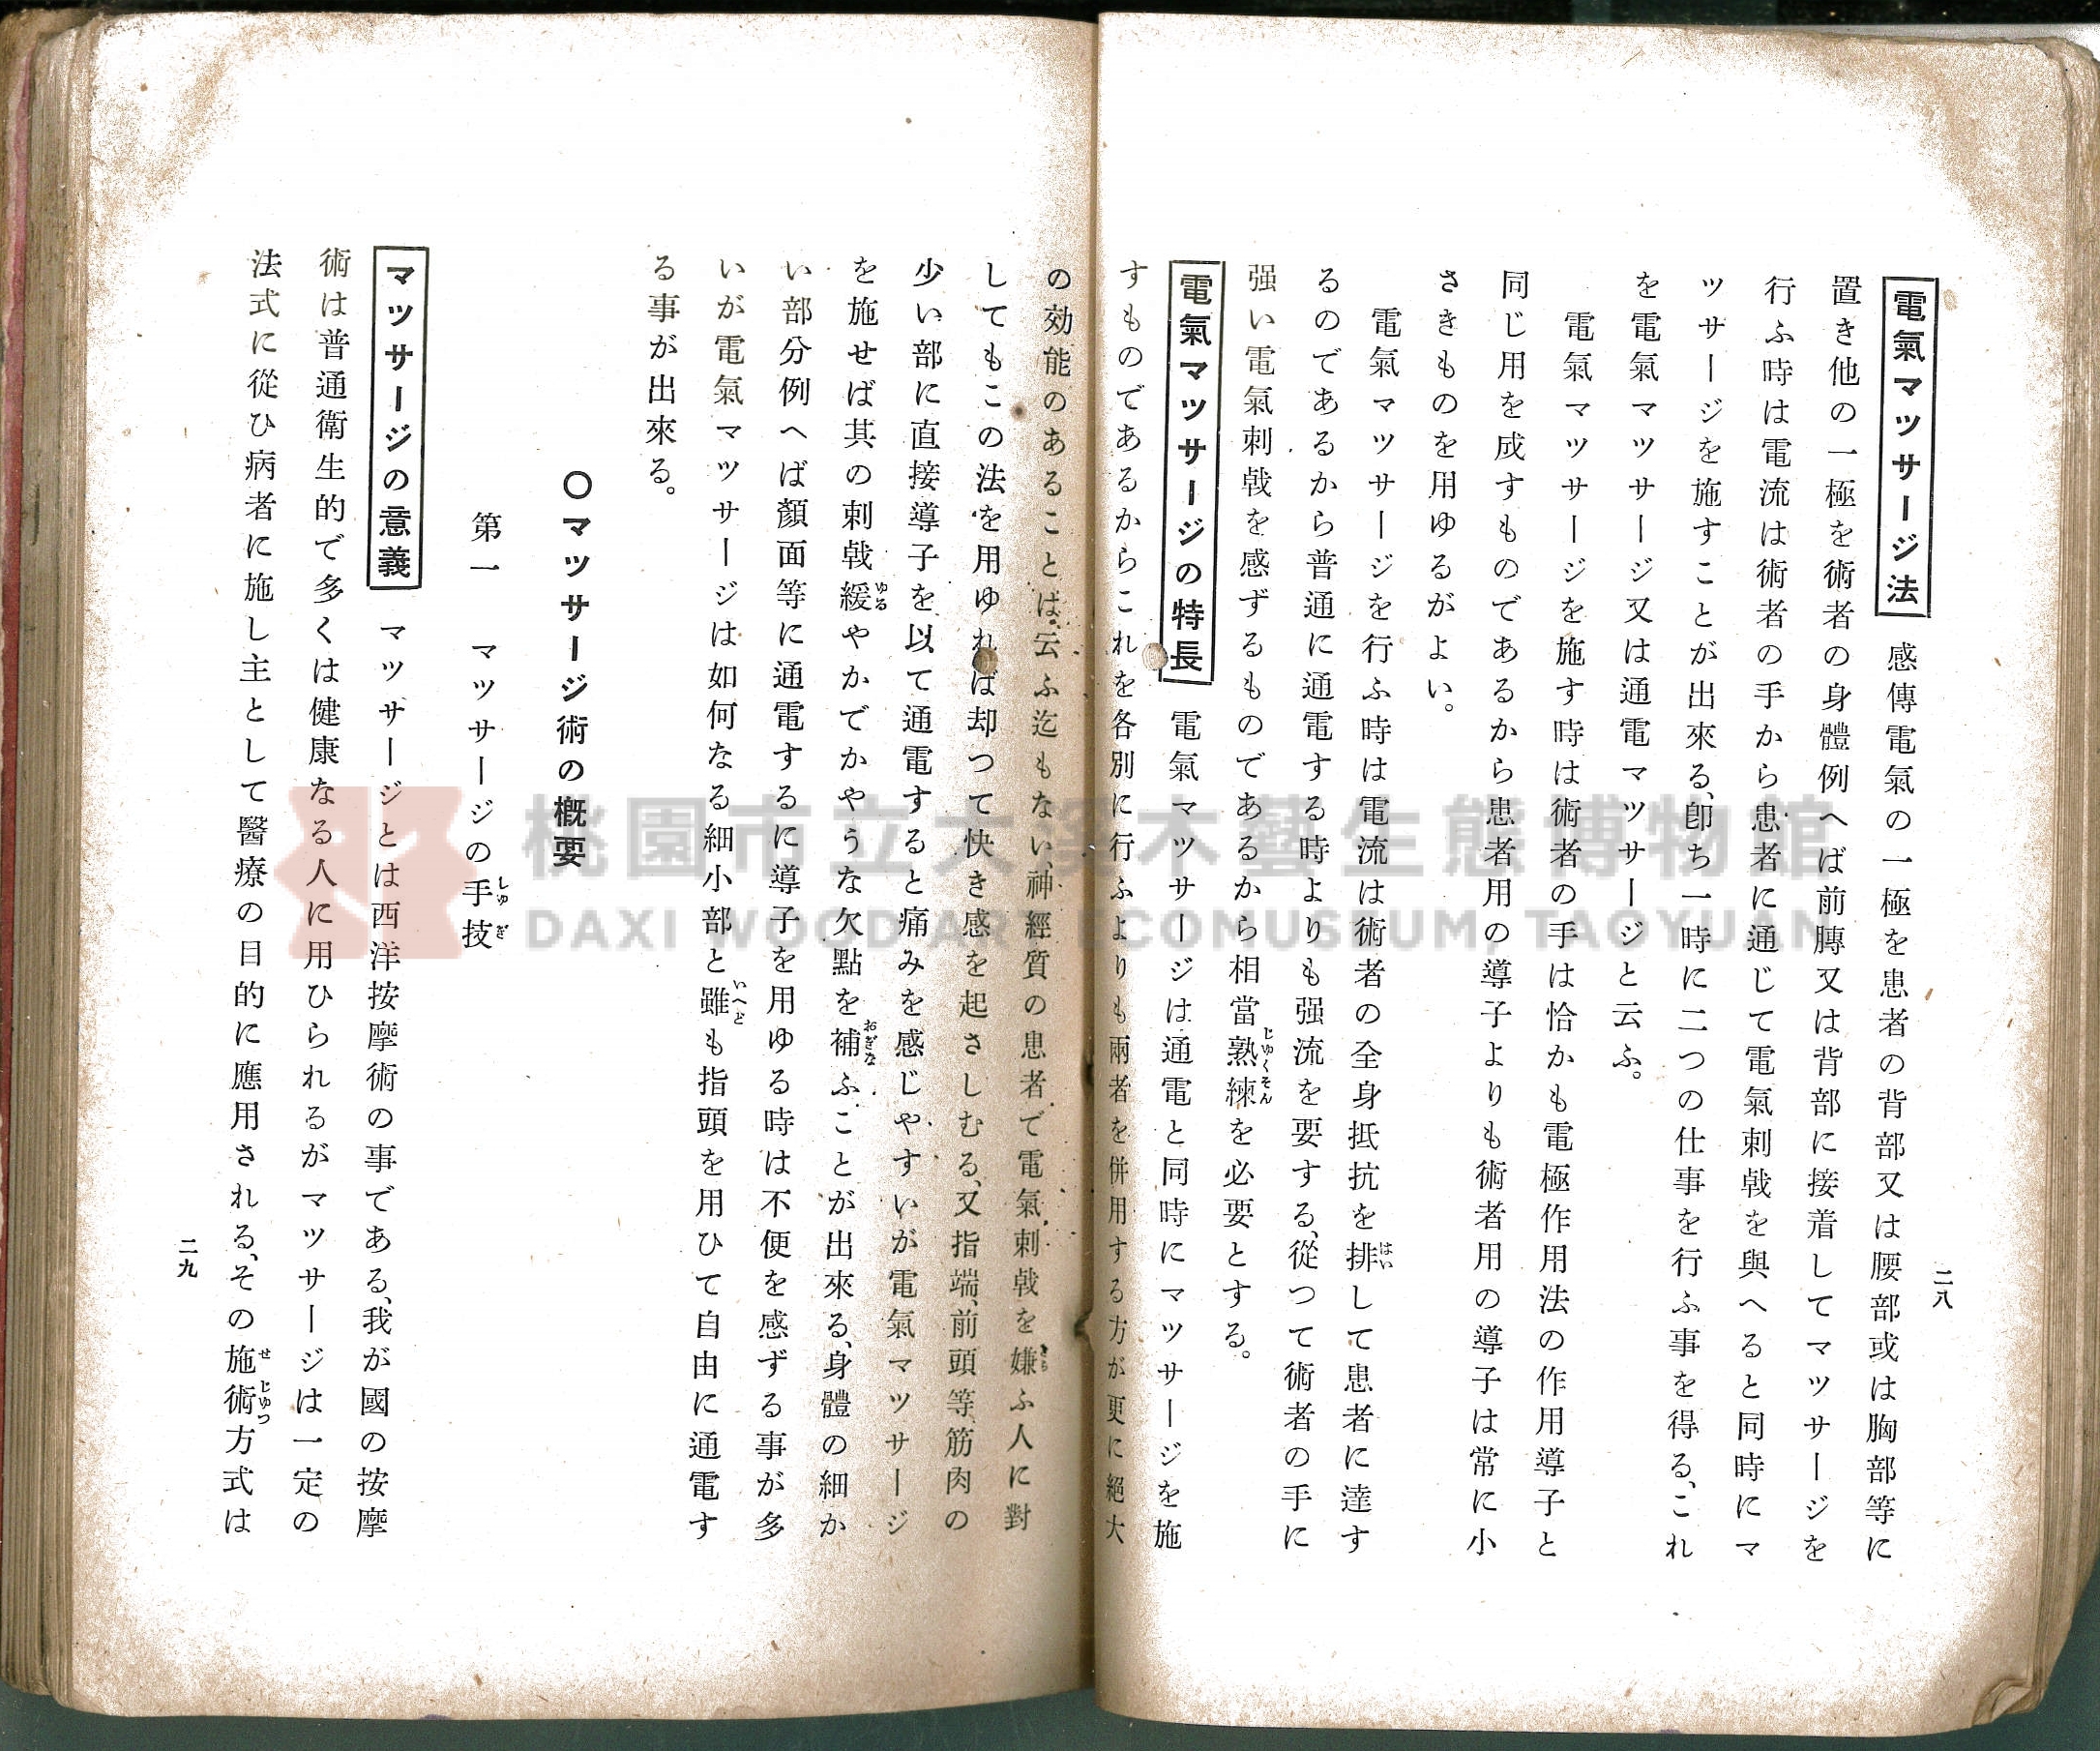 二八
電氣マッサージ法 感傳電氣の一極を患者の背部又は腰部或は胸部等に
置き他の一極を術者の身體例へば前膊又は背部に接着してマツサージを
行ふ時は電流は術者の手から患者に通じて電氣刺戟を與へると同時にマ
ツサージを施すことが出來る、卽ち一時に二つの仕事を行ふ事を得る、これ
を電氣マツサージ又は通電マツサージと云ふ。
電氣マツサージを施す時は術者の手は恰かも電極作用法の作用導子と
同じ用を成すものであるから患者用の導子よりも術者用の導子は常に小
さきものを用ゆるがよい。
電氣マツサージを行ふ時は電流は術者の全身抵抗を排して患者に達す
るのであるから普通に通電する時よりも强流を要する、從つて術者の手に
强い電氣刺戟を感ずるものであるから相當熟練を必要とする。
電氣マッサージの特長 電氣マツサージは通電と同時にマツサージを施
すものであるからこれを各別に行ふよりも兩者を併用する方が更に絕大
の効能のあることは云ふ迄もない、神經質の患者で電氣刺戟を嫌ふ人に對
してもこの法を用ゆれば却つて快き感を起さしむる、又指端、前頭等筋肉の
少い部に直接導子を以て通電すると痛みを感じやすいが電氣マツサージ
を施せば其の刺戟緩やかでかやうな欠點を補ふことが出來る、身體の細か
い部分例へば顏面等に通電するに導子を用ゆる時は不便を感ずる事が多
いが電氣マツサージは如何なる細小部と雖も指頭を用ひて自由に通電す
る事が出來る。
〇マッサージ術の槪要
第一 マツサージの手技
マッサージの意義 マツサージとは西洋按摩術の事である、我が國の按摩
術は普通衞生的で多くは健康なる人に用ひられるがマツサージは一定の
法式に從ひ病者に施し主として醫療の目的に應用される、その施術方式は
二九
桃園市立大溪木藝生態博物館
DAXI WOOD ART ECOMUSEUM, TAOYUAN